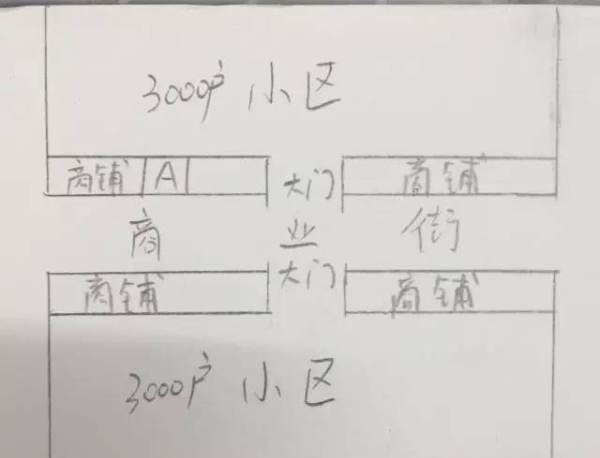 3000户 小区
商铺 A 大门 商铺
商 业 街
大门
商铺 商铺
3000户 小区